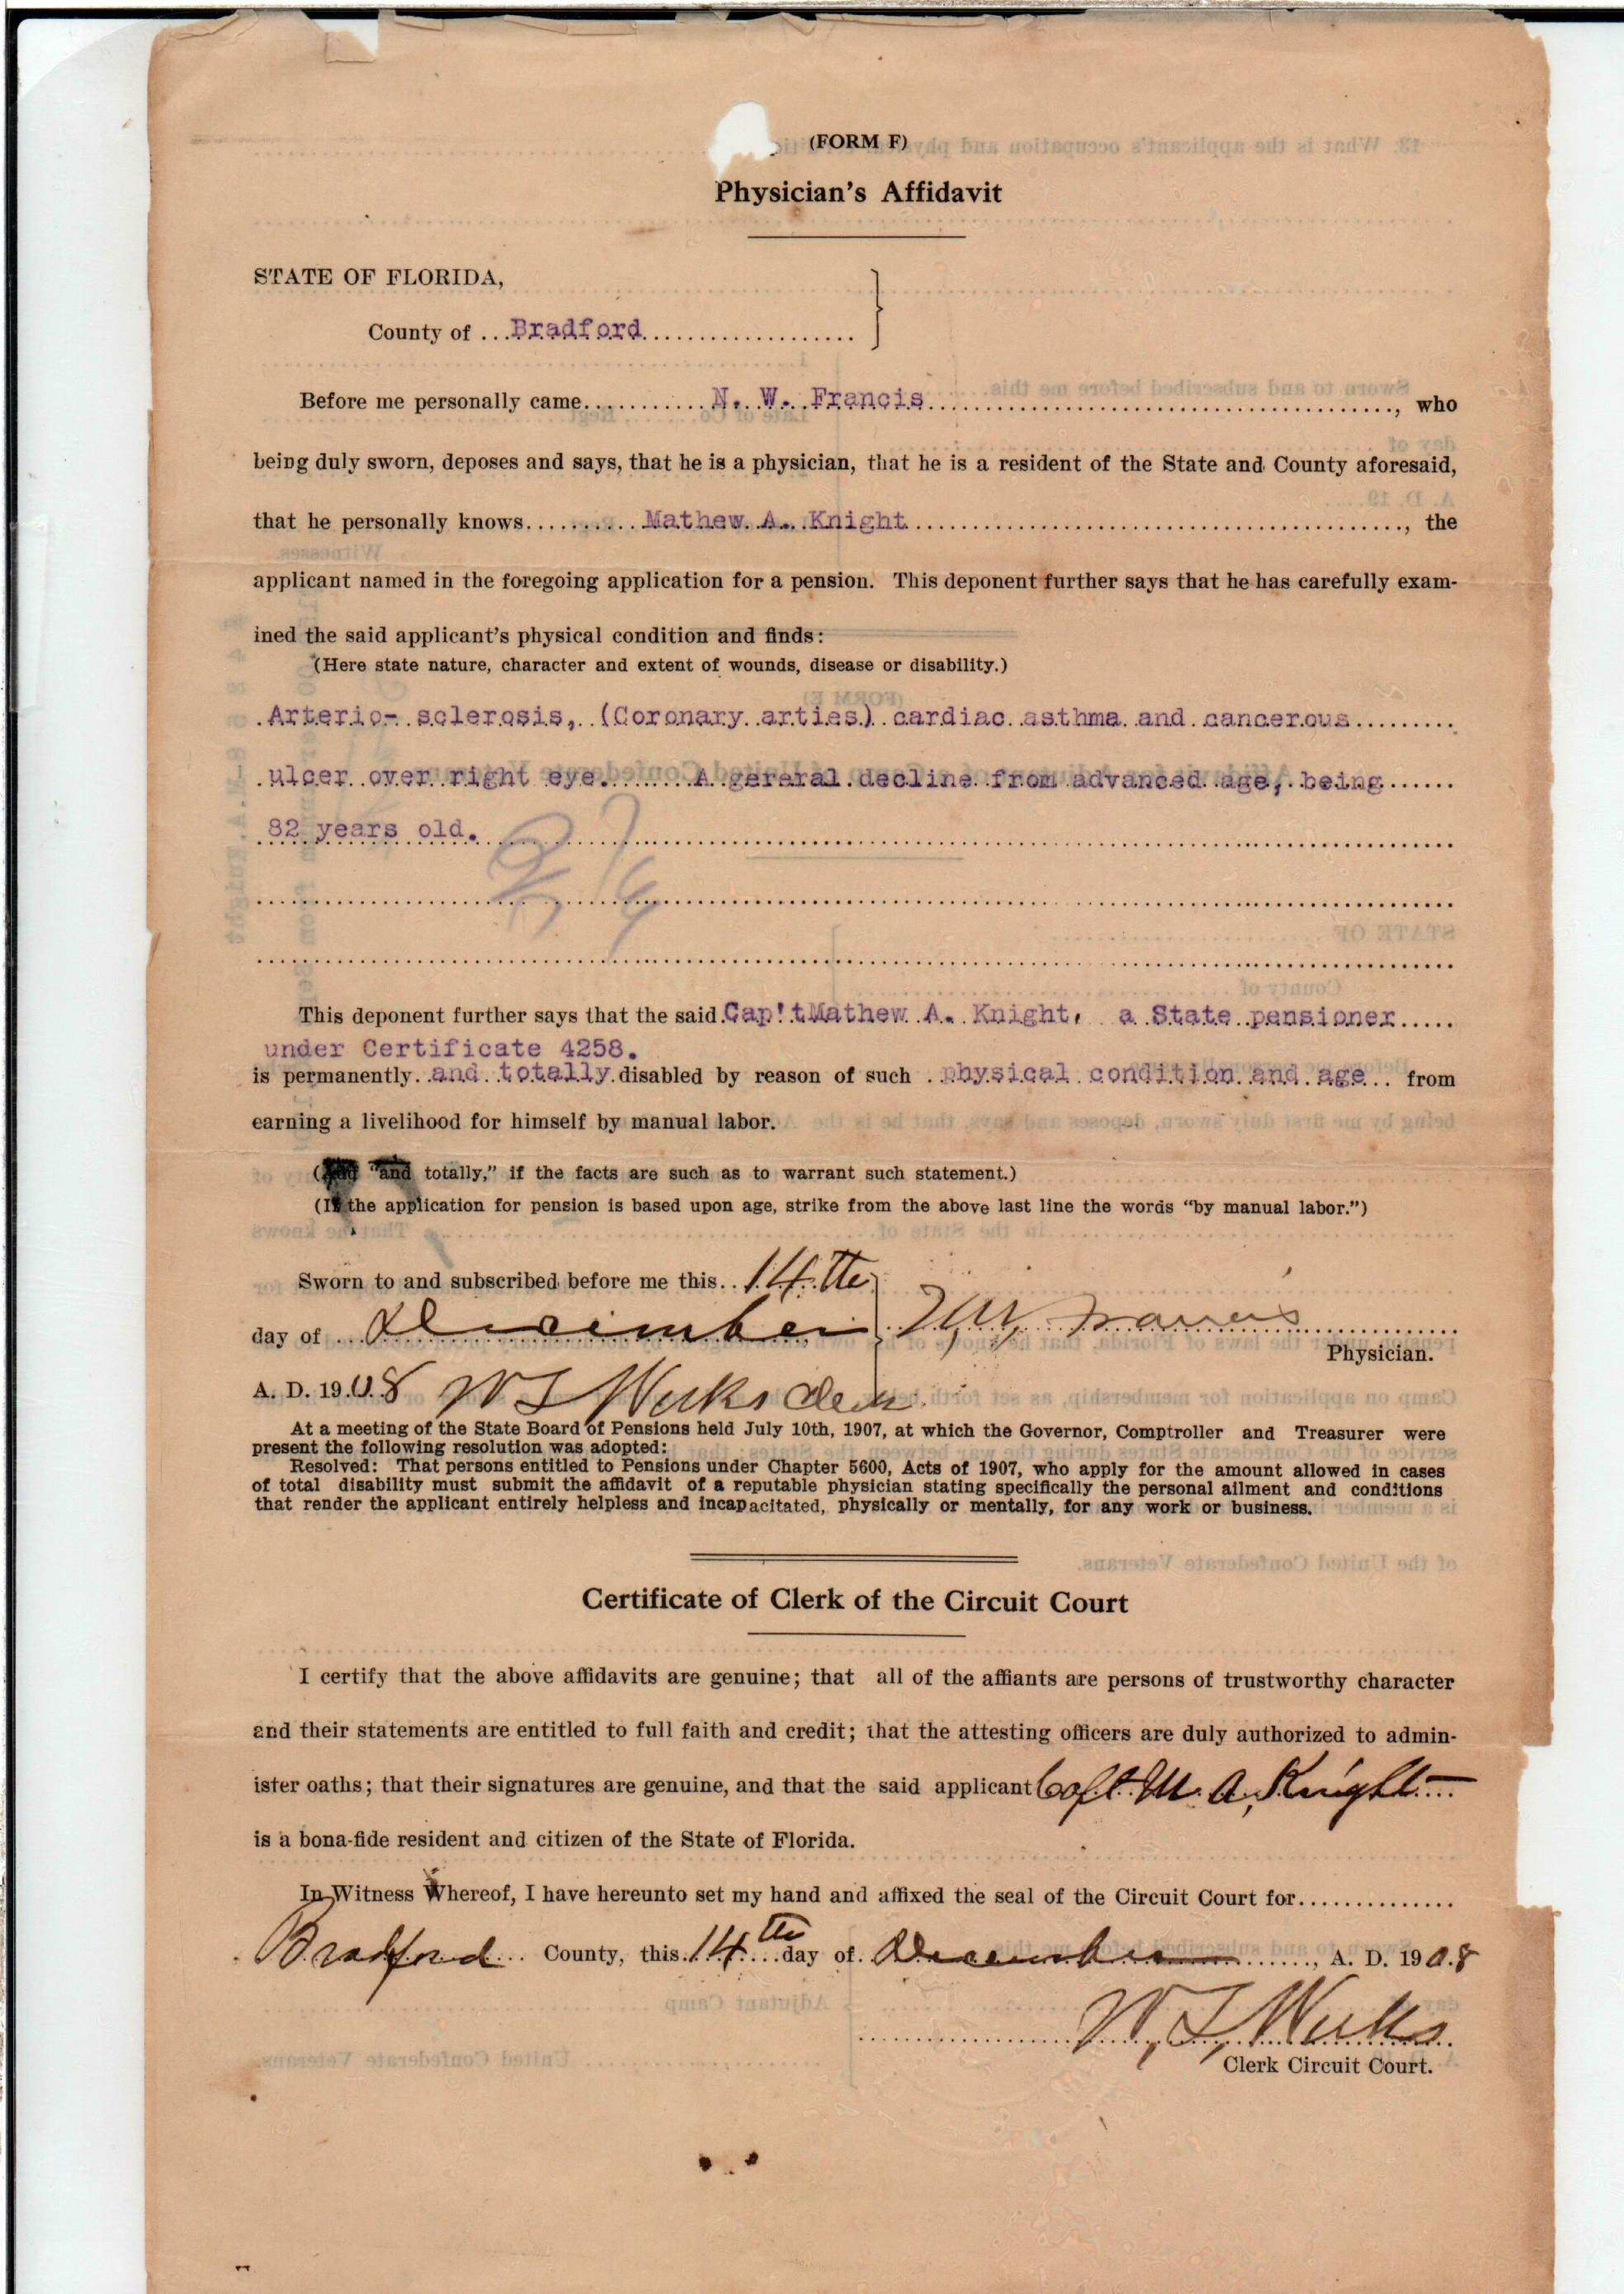 (FORM F)
Physician's Affidavit
STATE OF FLORIDA,
County of ...Bradford...................
Before me personally came............N. W. Francis............................................, who
being duly sworn, deposes and says, that he is a physician, that he is a resident of the State and County aforesaid,
that he personally knows...........Mathew A. Knight..............................................., the
applicant named in the foregoing application for a pension. This deponent further says that he has carefully exam-
ined the said applicant's physical condition and finds:
(Here state nature, character and extent of wounds, disease or disability.)
Arterio- sclerosis, (Coronary arties) cardiac asthma and cancerous
ulcer over right eye. A gereral decline from advanced age, being
82 years old.
This deponent further says that the said Cap't Mathew A. Knight, a State pensioner
under Certificate 4258.
is permanently and totally disabled by reason of such physical condition and age from
earning a livelihood for himself by manual labor.
("and totally," if the facts are such as to warrant such statement.)
(If the application for pension is based upon age, strike from the above last line the words "by manual labor.")
Sworn to and subscribed before me this 14th
day of December N W Francis
Physician.
A. D. 1908 W T Weeks Clerk
At a meeting of the State Board of Pensions held July 10th, 1907, at which the Governor, Comptroller and Treasurer were
present the following resolution was adopted:
Resolved: That persons entitled to Pensions under Chapter 5600, Acts of 1907, who apply for the amount allowed in cases
of total disability must submit the affidavit of a reputable physician stating specifically the personal ailment and conditions
that render the applicant entirely helpless and incapacitated, physically or mentally, for any work or business.
Certificate of Clerk of the Circuit Court
I certify that the above affidavits are genuine; that all of the affiants are persons of trustworthy character
and their statements are entitled to full faith and credit; that the attesting officers are duly authorized to admin-
ister oaths; that their signatures are genuine, and that the said applicant Capt. M. A. Knight
is a bona-fide resident and citizen of the State of Florida.
In Witness Whereof, I have hereunto set my hand and affixed the seal of the Circuit Court for..............
Bradford County, this 14th day of December, A. D. 1908
W. T. Weeks
Clerk Circuit Court.